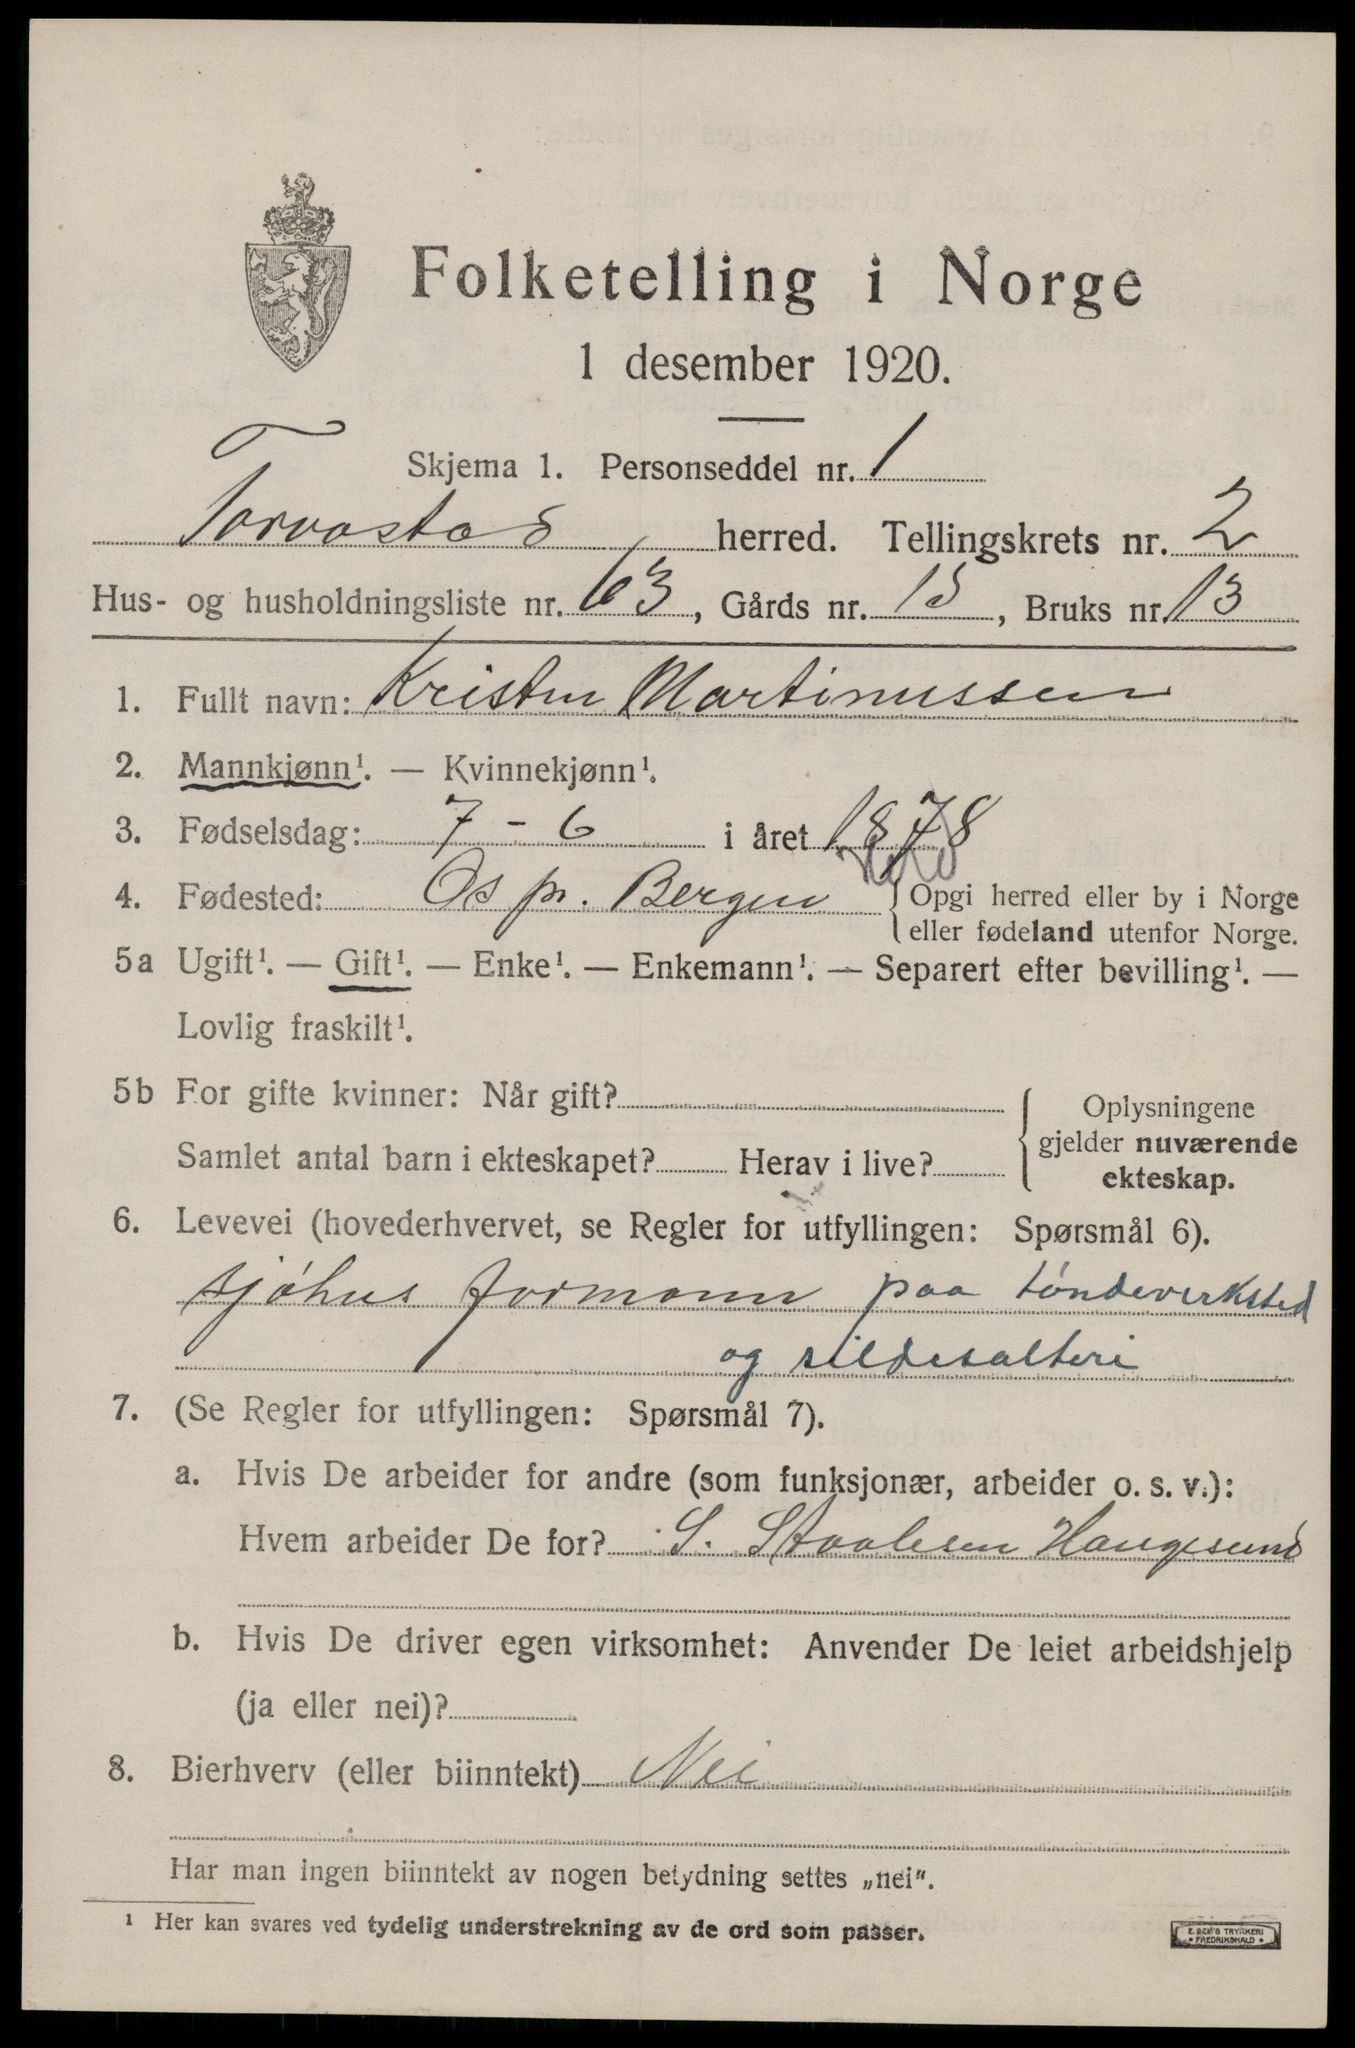 Folketelling i Norge
1 desember 1920.
Skjema 1. Personseddel nr. 1
Torvastad herred. Tellingskrets nr. 2
Hus- og husholdningsliste nr. 63, Gårds nr. 15, Bruks nr. 13
1. Fullt navn: Kristen Martinussen
2. Mannkjønn¹. — Kvinnekjønn¹.
3. Fødselsdag: 7 - 6 i året 1878
4. Fødested: Os pr. Bergen { Opgi herred eller by i Norge
eller fødeland utenfor Norge.
5a Ugift¹. — Gift¹. — Enke¹. — Enkemann¹. — Separert efter bevilling¹. —
Lovlig fraskilt¹.
5b For gifte kvinner: Når gift?
Samlet antal barn i ekteskapet? Herav i live?
Oplysningene
gjelder nuværende
ekteskap.
6. Levevei (hovederhvervet, se Regler for utfyllingen: Spørsmål 6).
sjøhus formann paa tøndeverksted
og sildesalteri
7. (Se Regler for utfyllingen: Spørsmål 7).
a. Hvis De arbeider for andre (som funksjonær, arbeider o. s. v.):
Hvem arbeider De for? S. Staalesen Haugesund
b. Hvis De driver egen virksomhet: Anvender De leiet arbeidshjelp
(ja eller nei)?
8. Bierhverv (eller biinntekt) Nei
Har man ingen biinntekt av nogen betydning settes „nei“.
¹ Her kan svares ved tydelig understrekning av de ord som passer.
E. SEM'S TRYKKERI
• FREDRIKSHALD •